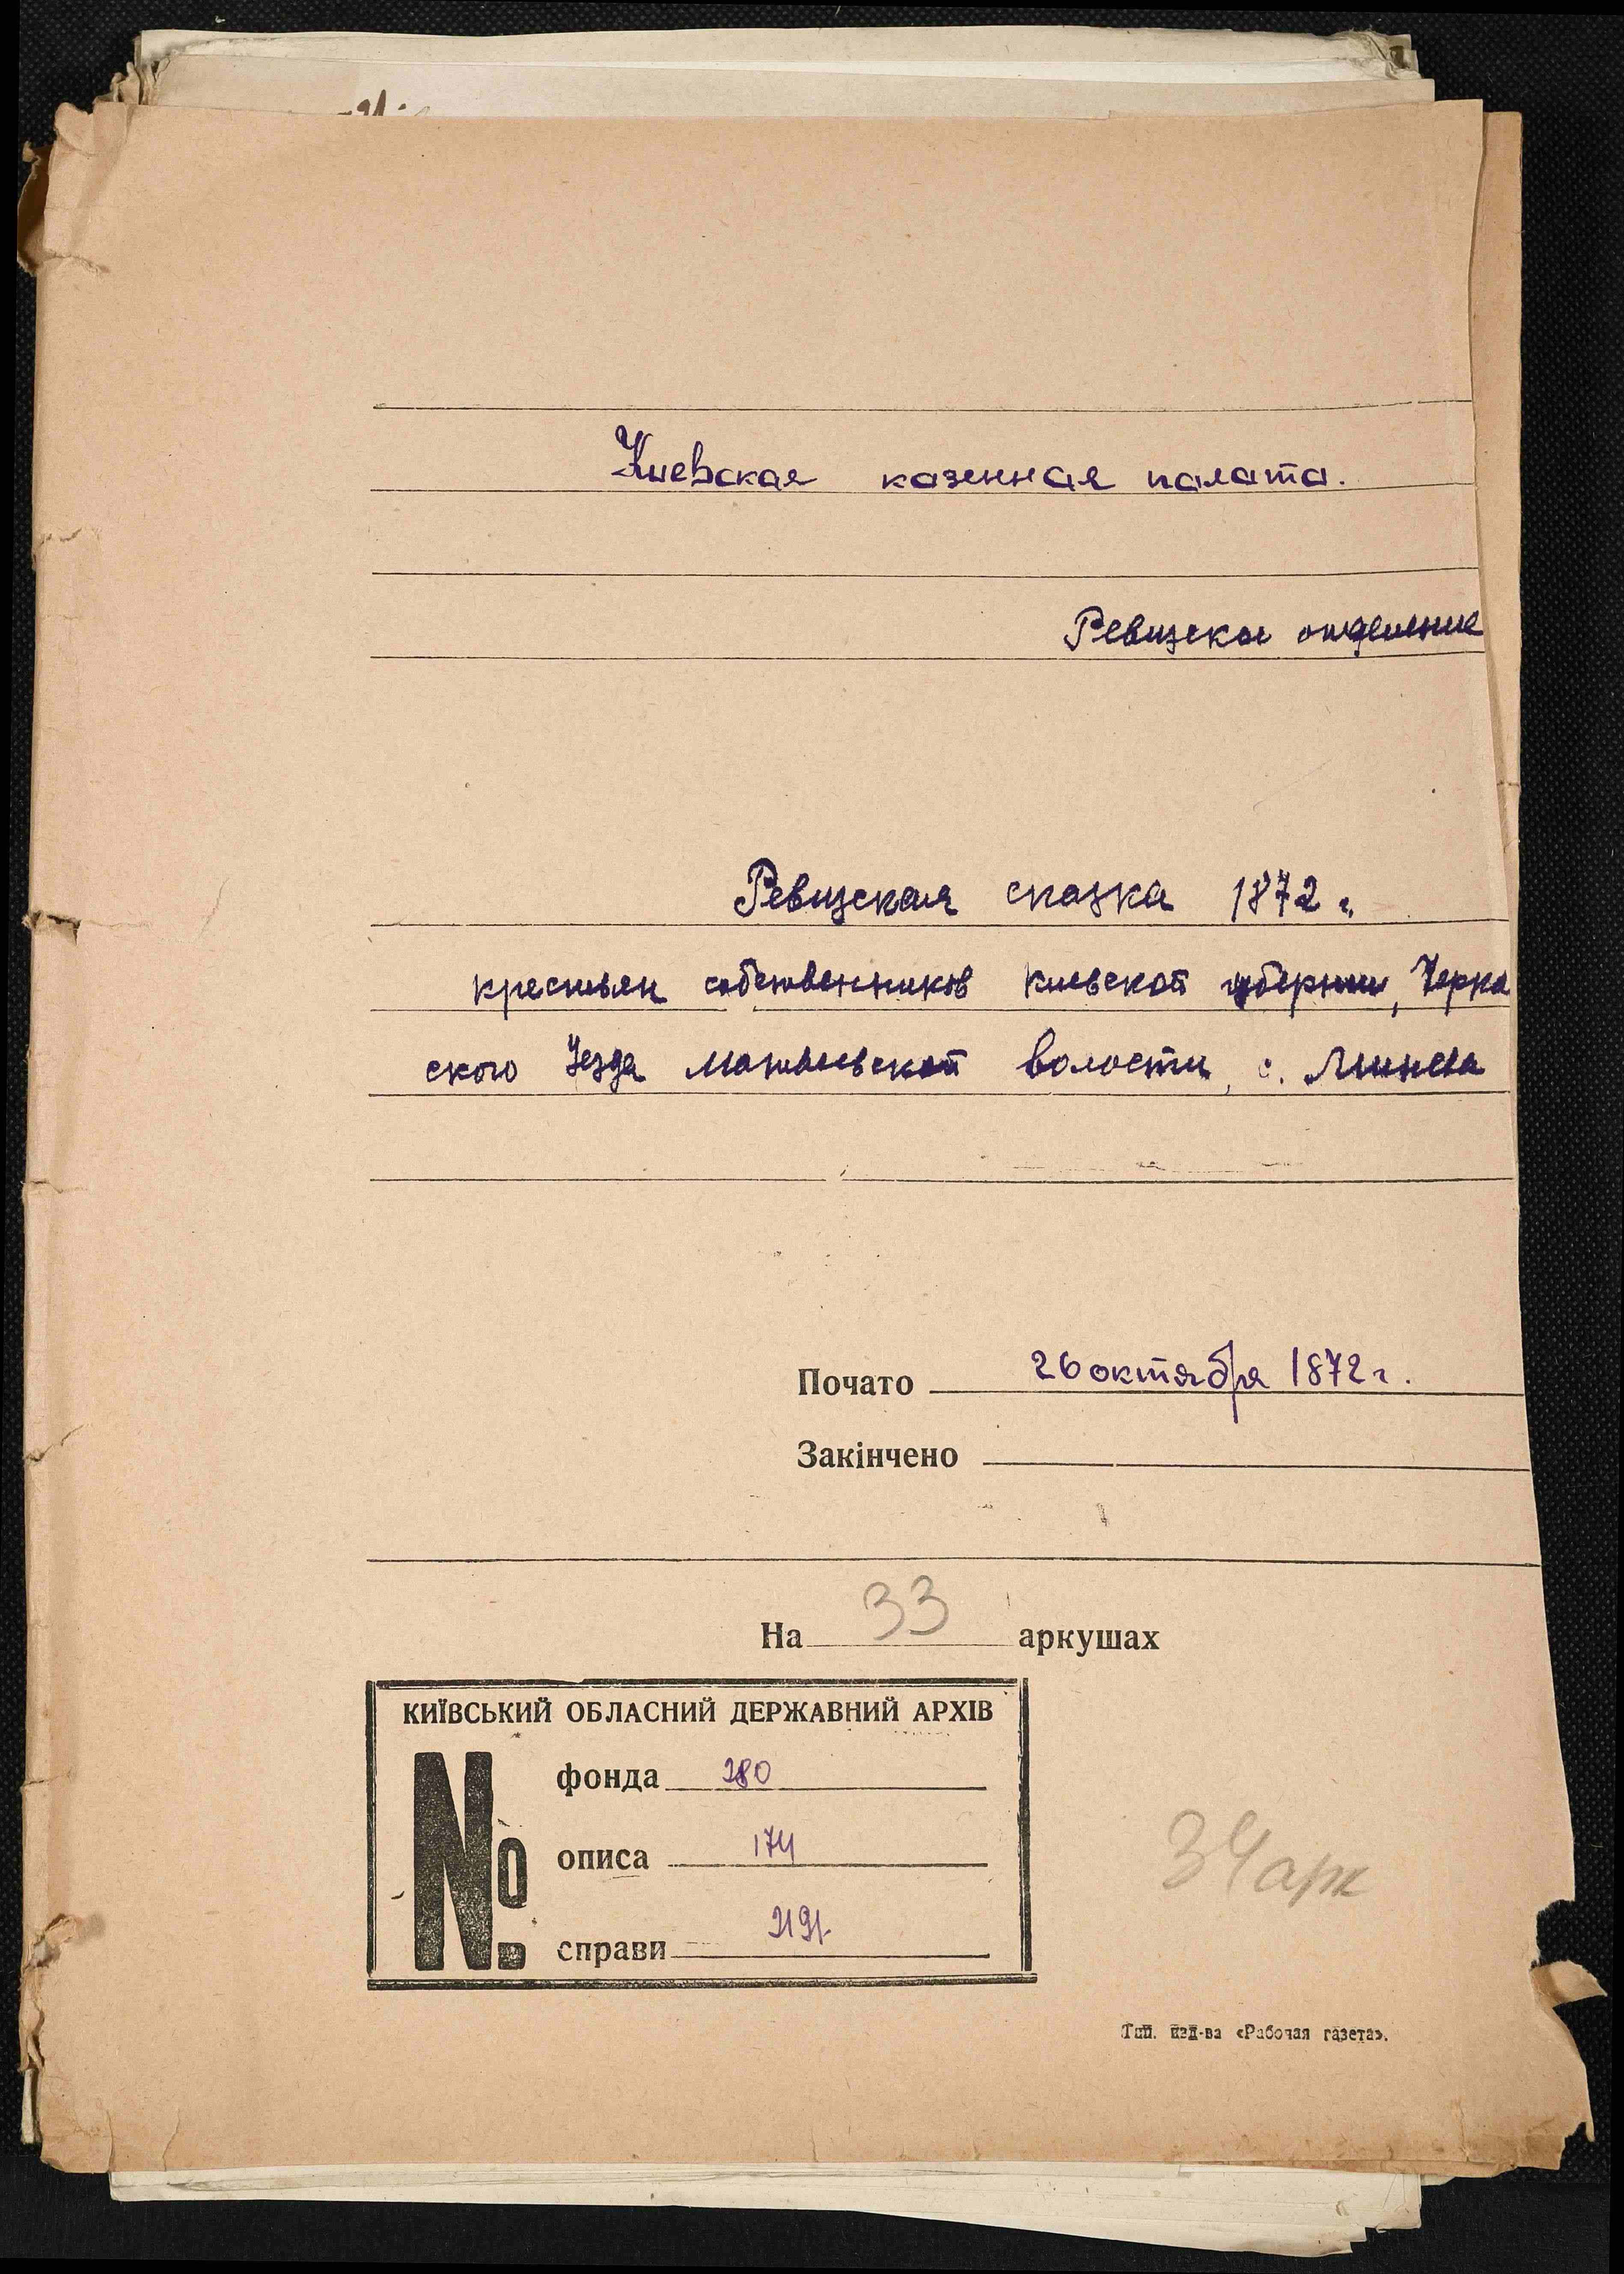 Киевская казенная палата.
Ревизское отделение
Ревизская сказка 1872 г.
крестьян собственников Киевской губернии, Черка
ского Уезда волости, с.
Почато 26 октября 1872 г.
Закінчено
На 33 аркушах
КИЇВСЬКИЙ ОБЛАСНИЙ ДЕРЖАВНИЙ АРХІВ
№
фонда 280
описа 174
справи
34 арк
Тип. изд-ва «Рабочая газета».